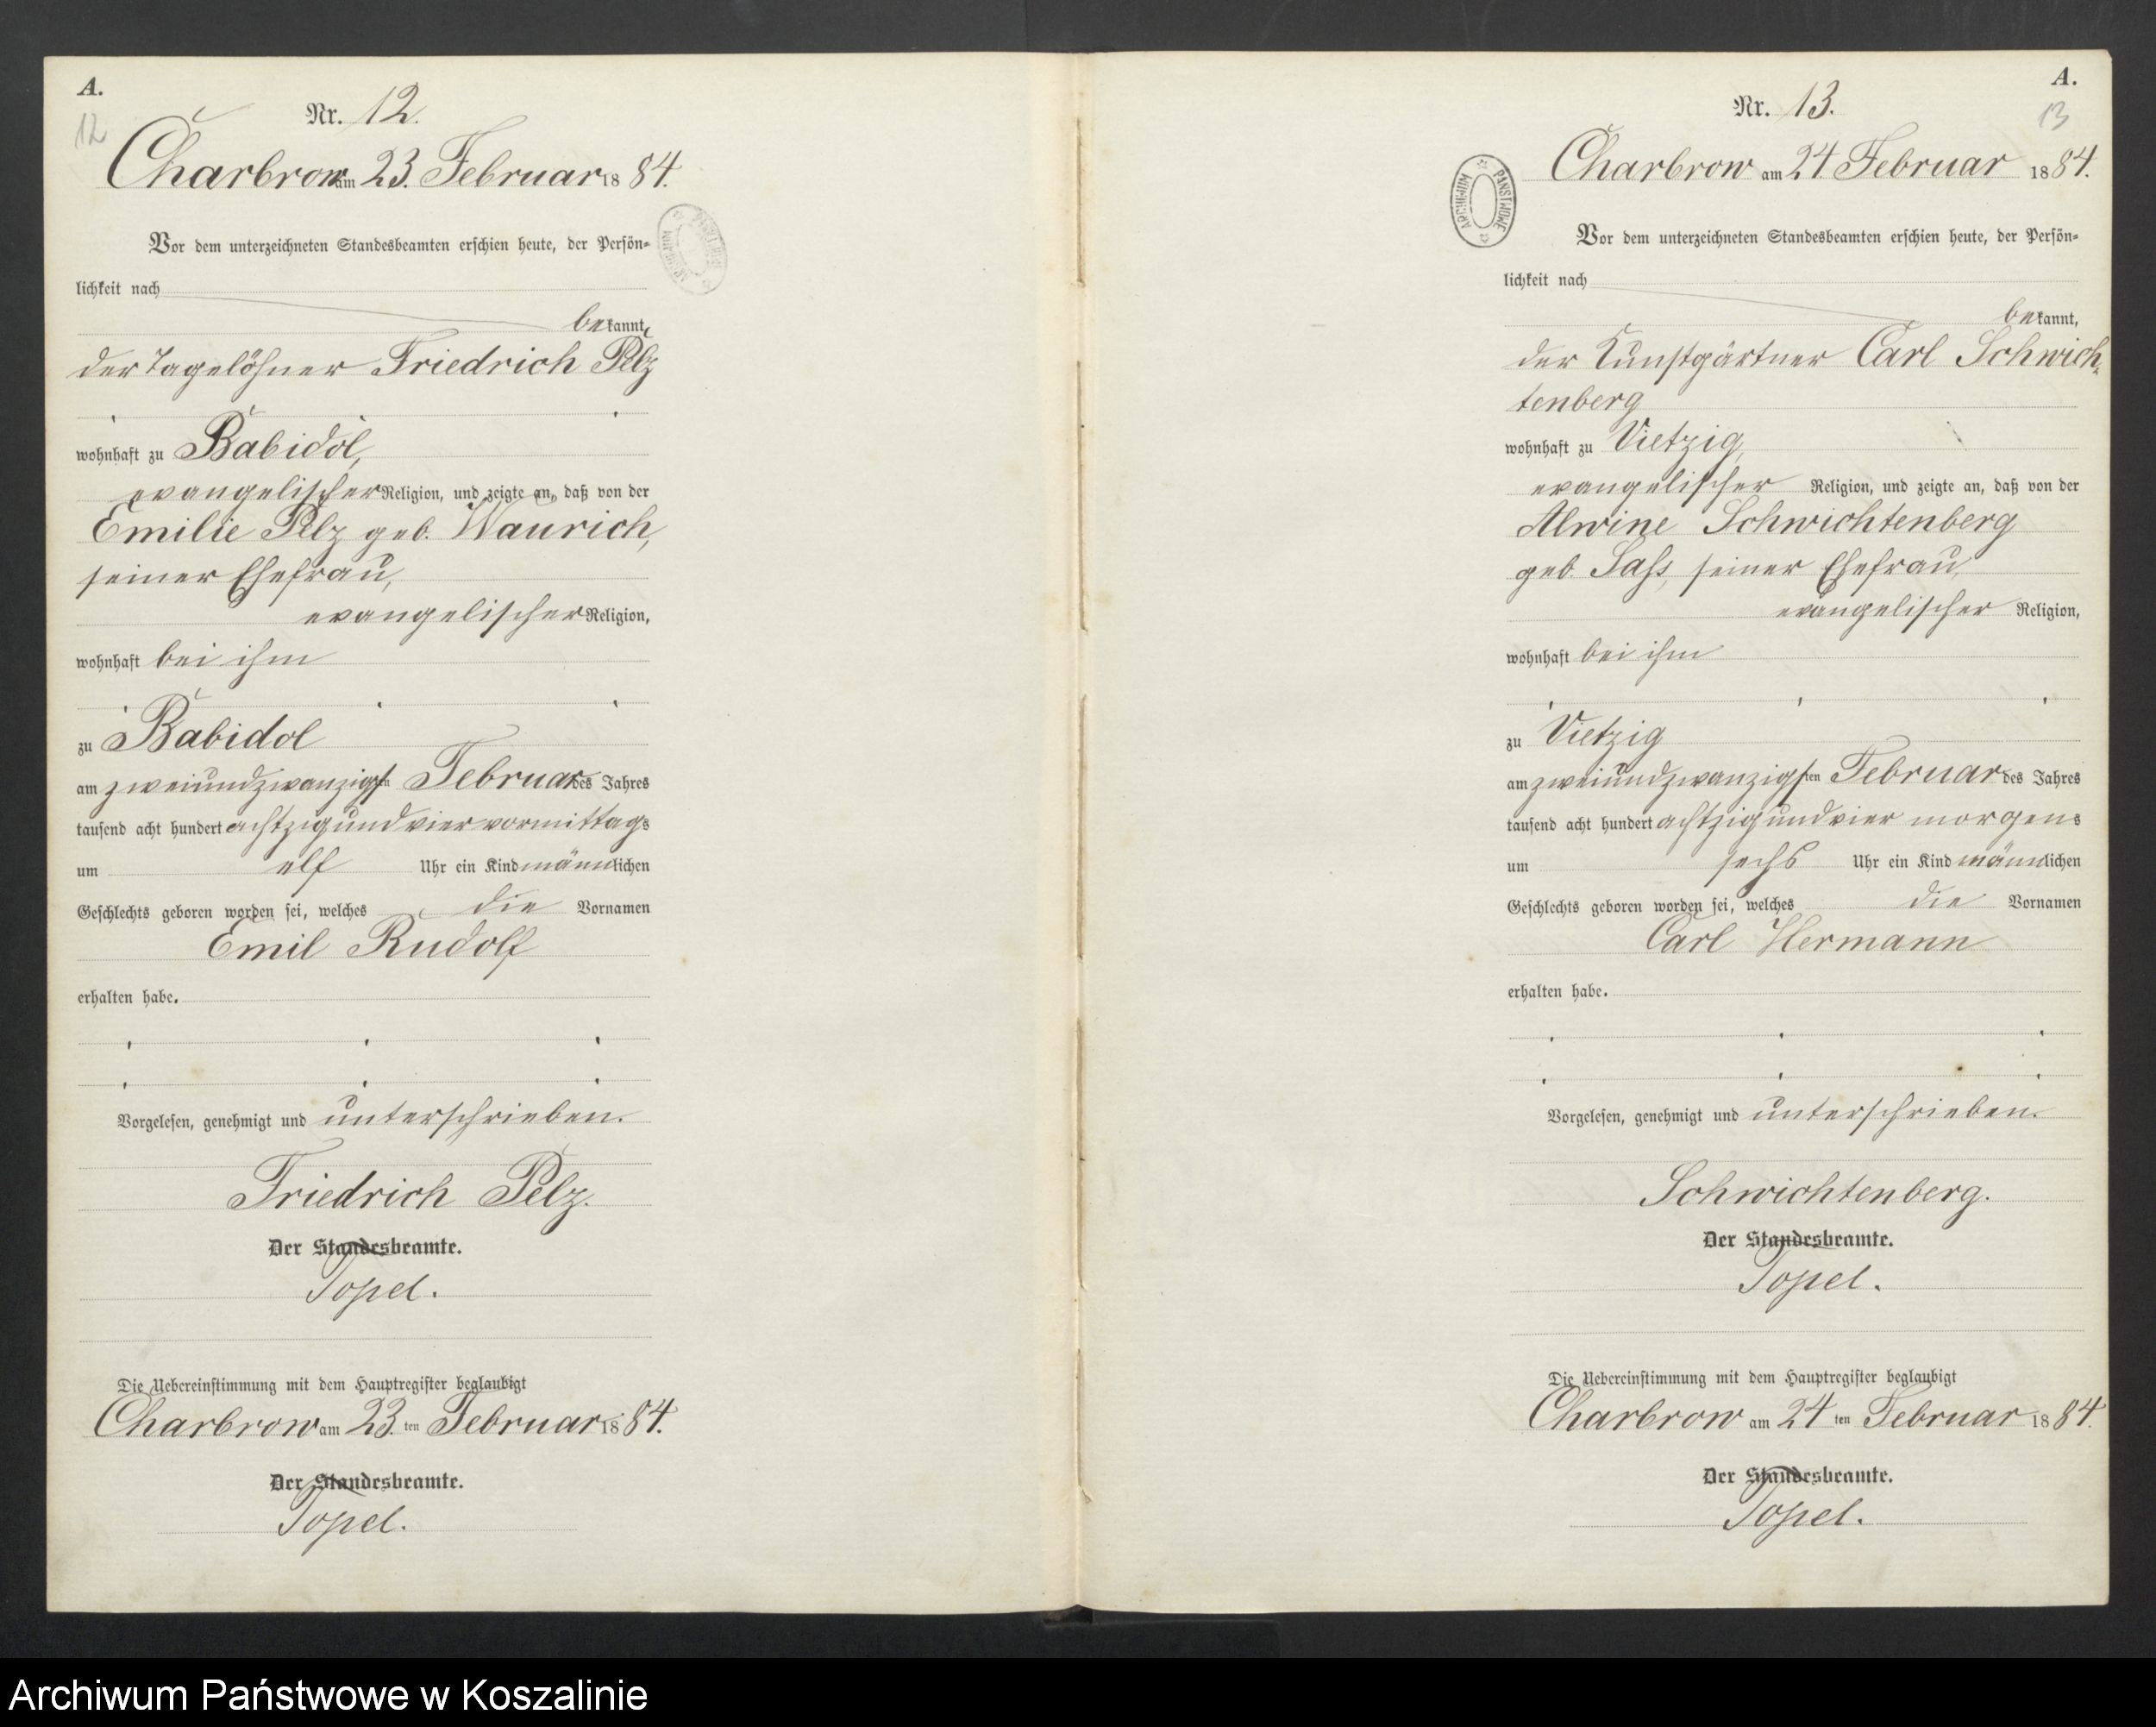 A.
12
Nr. 12.
Charbrow am 23. Februar 1884.
Vor dem unterzeichneten Standesbeamten erschien heute, der Persön-
lichkeit nach
bekannt,
der Tagelöhner Friedrich Pelz
wohnhaft zu Babidol,
evangelischer Religion, und zeigte an, daß von der
Emilie Pelz geb. Waurich,
seiner Ehefrau,
evangelischer Religion,
wohnhaft bei ihm
zu Babidol
am zweiundzwanzigsten Februar des Jahres
tausend acht hundert achtzig und vier vormittags
um elf Uhr ein Kind männlichen
Geschlechts geboren worden sei, welches die Vornamen
Emil Rudolf
erhalten habe.
Vorgelesen, genehmigt und unterschrieben.
Friedrich Pelz.
Der Standesbeamte.
Topel.
Die Uebereinstimmung mit dem Hauptregister beglaubigt
Charbrow am 23. ten Februar 1884.
Der Standesbeamte.
Topel.
A.
13
Nr. 13.
ARCHIWUM PAŃSTWOWE
Charbrow am 24. Februar 1884.
Vor dem unterzeichneten Standesbeamten erschien heute, der Persön-
lichkeit nach
bekannt,
der Kunstgärtner Carl Schwich-
tenberg
wohnhaft zu Vietzig,
evangelischer Religion, und zeigte an, daß von der
Alwine Schwichtenberg
geb. Sass, seiner Ehefrau,
evangelischer Religion,
wohnhaft bei ihm
zu Vietzig
am zweiundzwanzigsten Februar des Jahres
tausend acht hundert achtzig und vier morgens
um sechs Uhr ein Kind männlichen
Geschlechts geboren worden sei, welches die Vornamen
Carl Hermann
erhalten habe.
Vorgelesen, genehmigt und unterschrieben.
Schwichtenberg.
Der Standesbeamte.
Topel.
Die Uebereinstimmung mit dem Hauptregister beglaubigt
Charbrow am 24 ten Februar 1884.
Der Standesbeamte.
Topel.
Archiwum Państwowe w Koszalinie